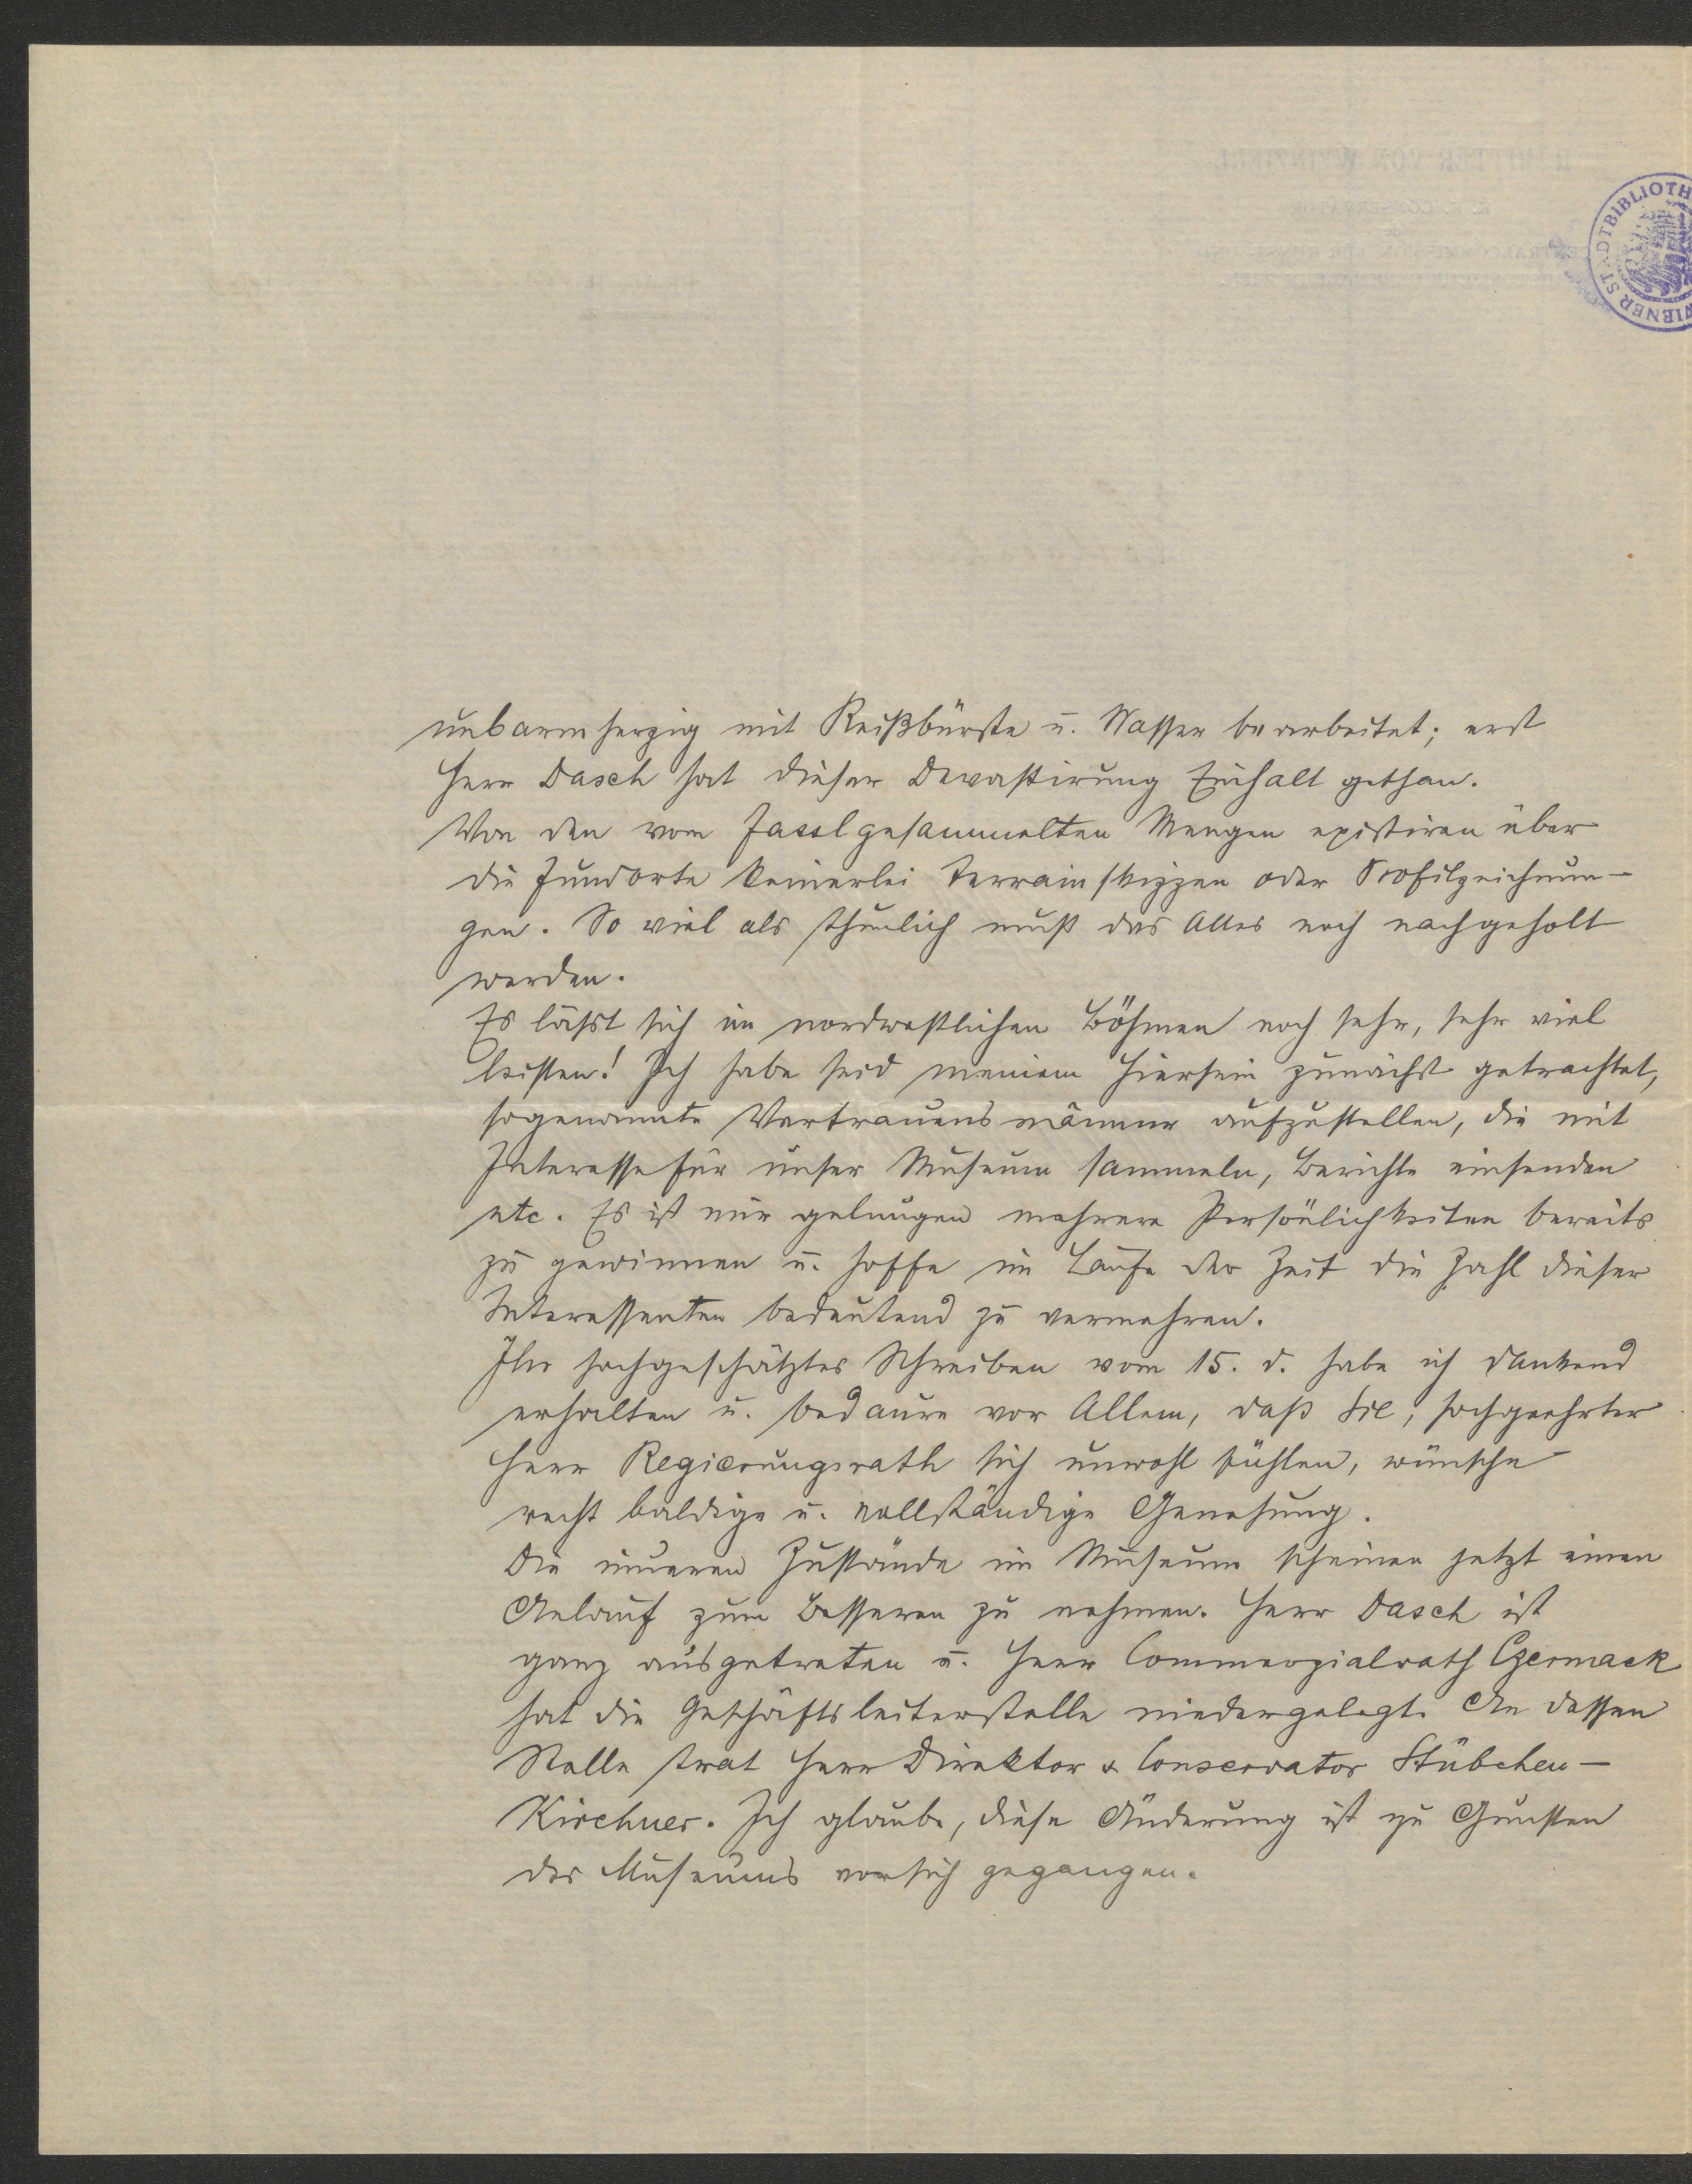 WIENER STADTBIBLIOTH
unbarmherzig mit Reißbürste u. Wasser bearbeitet; erst
Herr Dasch hat dieser Devastirung Einhalt gethan.
Von den vom Fassl gesammelten Mengen existiren über
die Fundorte keinerlei Terrainskizzen oder Profilzeichnun-
gen. So viel als thunlich muß das Alles noch nachgeholt
werden.
Es läßt sich im nordwestlichen Böhmen noch sehr, sehr viel
leisten! Ich habe seid meinem Hiersein zunächst getrachtet,
sogenannte Vertrauensmänner aufzustellen, die mit
Interesse für unser Museum sammeln, Berichte einsenden
etc. Es ist mir gelungen mehrere Persönlichkeiten bereits
zu gewinnen u. hoffe im Laufe der Zeit die Zahl dieser
Interessenten bedeutend zu vermehren.
Ihr hochgeschätztes Schreiben vom 15. d. habe ich dankend
erhalten u. bedaure vor Allem, daß Sie, hochgeehrter
Herr Regierungsrath sich unwohl fühlen, wünsche
recht baldige u. vollständige Genesung.
Die inneren Zustände im Museum scheinen jetzt einen
Anlauf zum Besseren zu nehmen. Herr Dasch ist
ganz ausgetreten u. Herr Commerzialrath Czermack
hat die Geschäftsleiterstelle niedergelegt. An dessen
Stelle trat Herr Direktor & Conservator Stübchen-
Kirchner. Ich glaube, diese Änderung ist zu Gunsten
des Museums vor sich gegangen.